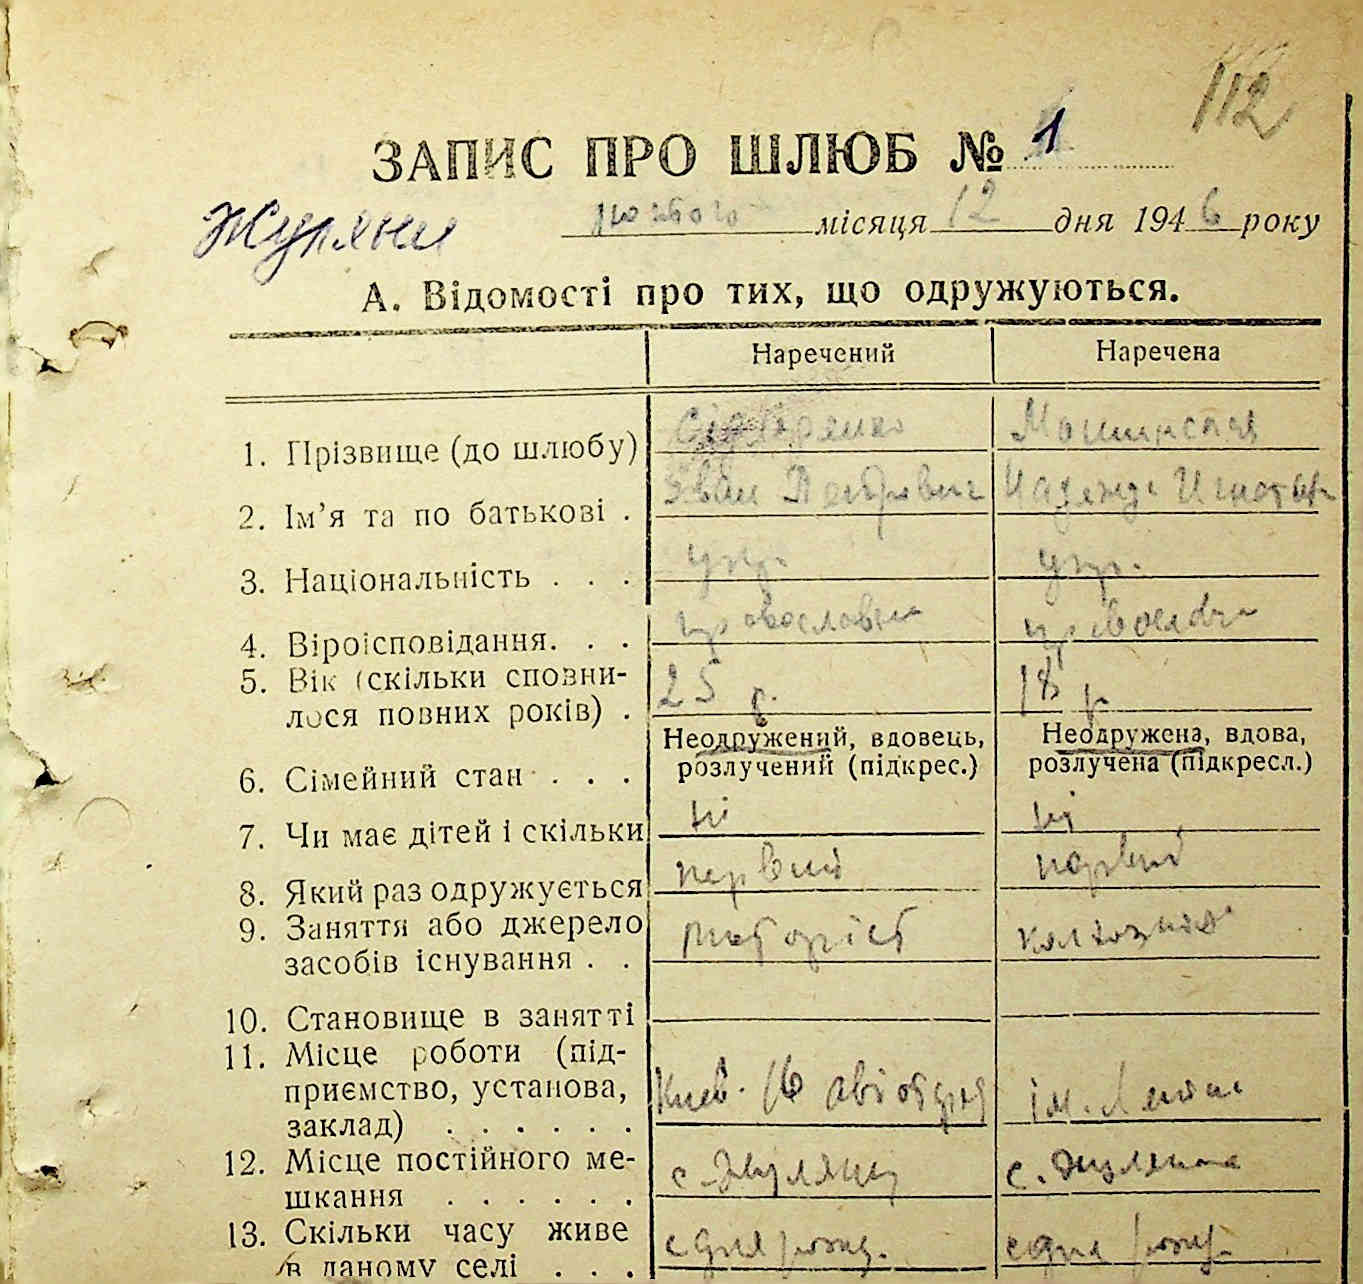 112
ЗАПИС ПРО ШЛЮБ № 1
Жуляни лютого місяця 12 дня 1946 року
А. Відомості про тих, що одружуються.
Наречений Наречена
1. Прізвище (до шлюбу)
2. Ім’я та по батькові . Іван Петрович Надежда
3. Національність . . . укр. укр.
4. Віроісповідання. . . православна православна
5. Вік (скільки сповни- 25 р. 18 р.
лося повних років) .
Неодружений, вдовець, Неодружена, вдова,
6. Сімейний стан . . . розлучений (підкрес.) розлучена (підкресл.)
7. Чи має дітей і скільки ні ні
8. Який раз одружується первий первий
9. Заняття або джерело
засобів існування . .
10. Становище в занятті
11. Місце роботи (під-
приємство, установа, Киев. ім. Леніна
заклад) . . . . . .
12. Місце постійного ме- с. Жуляни с. Жуляни
шкання . . . . . .
13. Скільки часу живе
в даному селі . . .